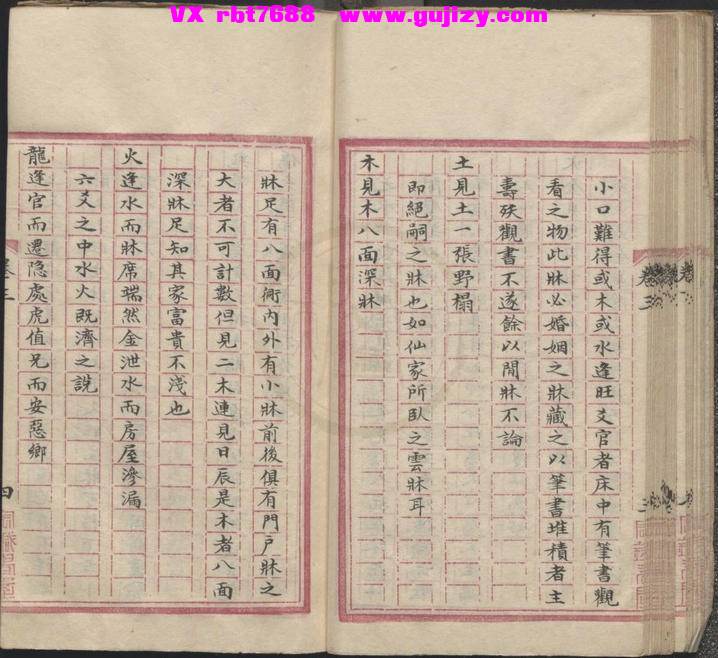 VX rbt7688 www.gujizy.com
小口難得或木或水逢旺爻官者床中有筆書觀
看之物此牀必婚姻之牀藏之以筆書堆積者主
壽殀觀書不遂餘以閒牀不論
土見土一張野榻
即絕嗣之牀也如仙家所臥之雲牀耳
木見木八面深牀
牀足有八面術內外有小牀前後俱有門戶牀之
大者不可計數但見二木連見日辰是木者八面
深牀足知其家富貴不淺也
火逢水而牀席瑞然金泄水而房屋滲漏
六爻之中水火既濟之說
龍逢官而遷隐處虎值兄而安惡鄉
卷三
四